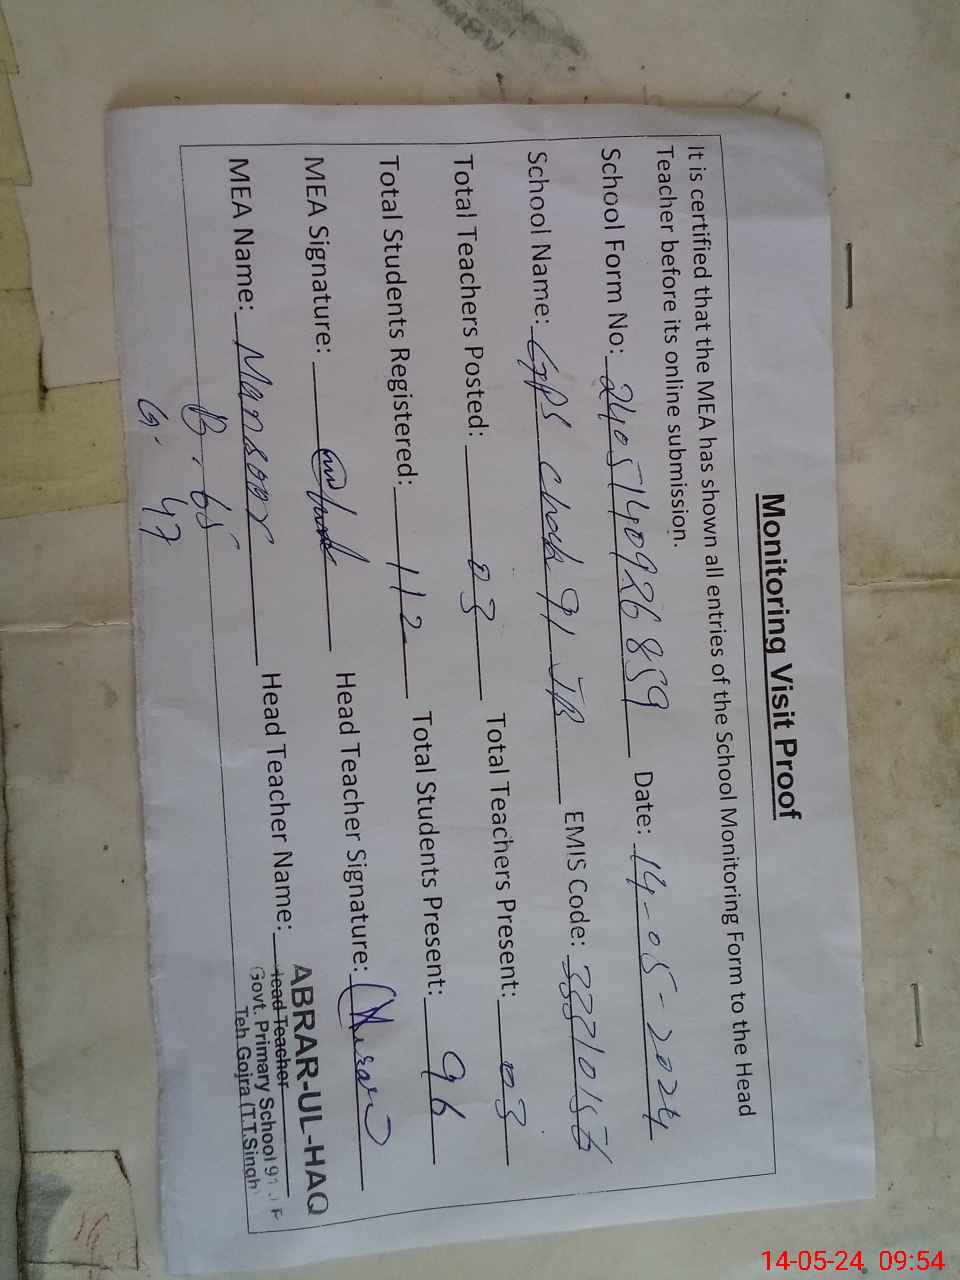 Monitoring Visit Proof
It is certified that the MEA has shown all entries of the School Monitoring Form to the Head
Teacher before its online submission.
School Form No: 2405140926859 Date: 14-05-2024
School Name: GPS chak 91 JB EMIS Code:
Total Teachers Posted: 03 Total Teachers Present: 03
Total Students Registered: 112 Total Students Present: 96
MEA Signature: Head Teacher Signature:
MEA Name: Mansoor Head Teacher Name: ABRAR-UL-HAQ
Head Teacher
Govt. Primary School 91
Teh Gojra (T.T.Singh
B. 65
G. 47
14-05-24 09:54